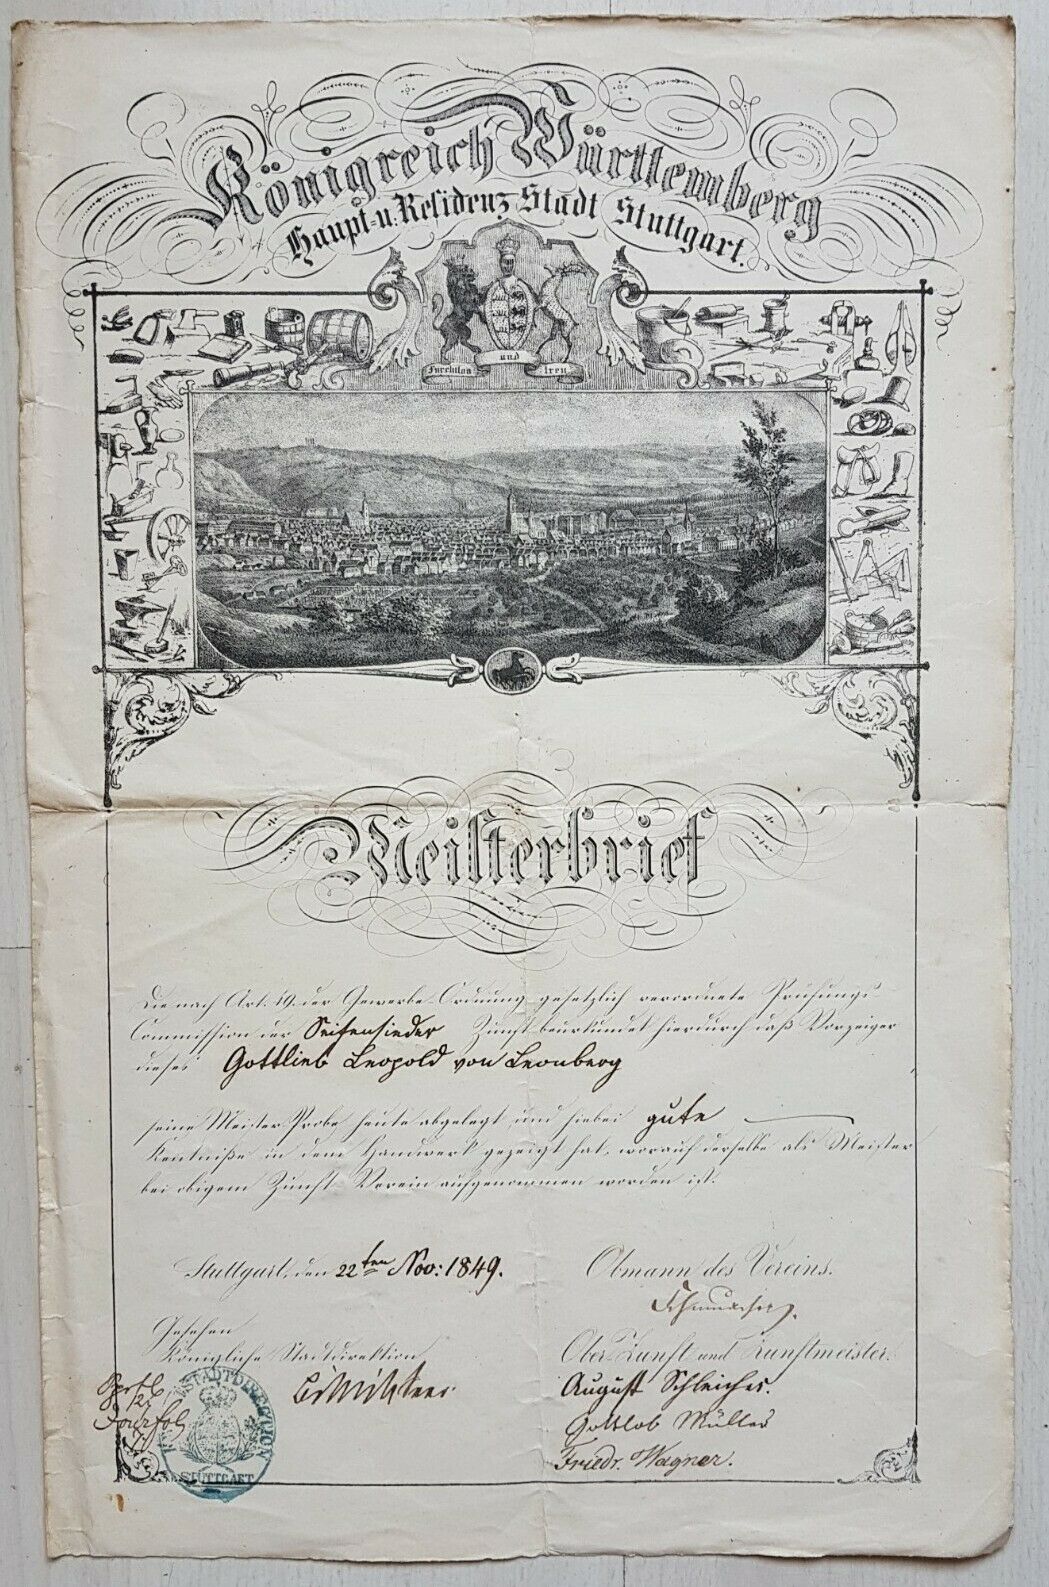 Königreich Württemberg
Haupt- u. Residenz Stadt Stuttgart.
Furchtlos und treu
Meisterbrief
Die nach Art: 19. der Gewerbe-Ordnung gesetzlich verordnete Prüfungs-
Commission der Seifensieder Zunft beurkundet hierdurch daß Vorzeiger
dieses Gottlieb Leopold von Leonberg
seine Meister Probe heute abgelegt und hiebei gute
Kentniße in dem Handwerk gezeigt hat, worauf derselbe als Meister
bei obigem Zunft-Verein aufgenommen worden ist.
Stuttgart, den 22ten Nov: 1849.
Obmann des Vereins.
Gesehen
Königliche Stadtdirektion
Ober Zunft und Zunftmeister.
August Schleicher.
Gottlob Müller
Friedr. Wagner.
STADTDIRECTION
STUTTGART